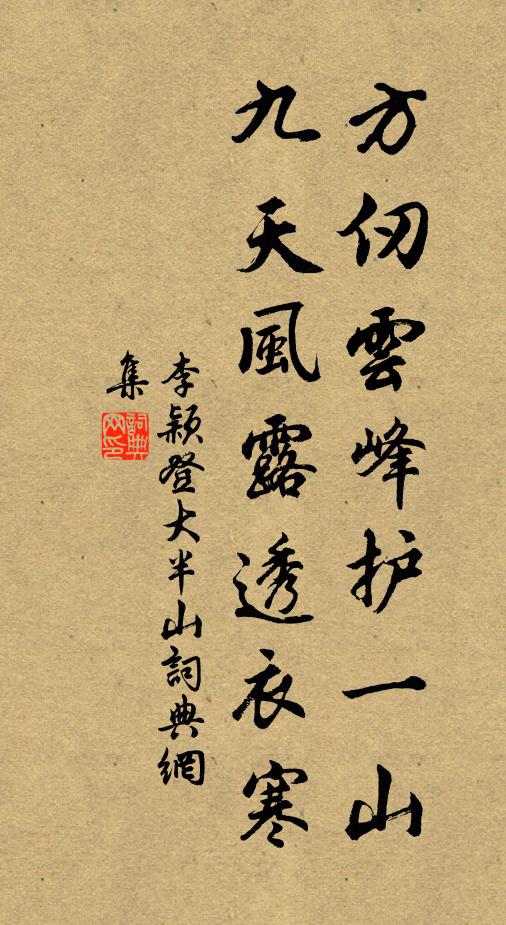 方仞雲峰护一山
九天風露透衣寒
李颖登大半山詞典網
集
詞典網印